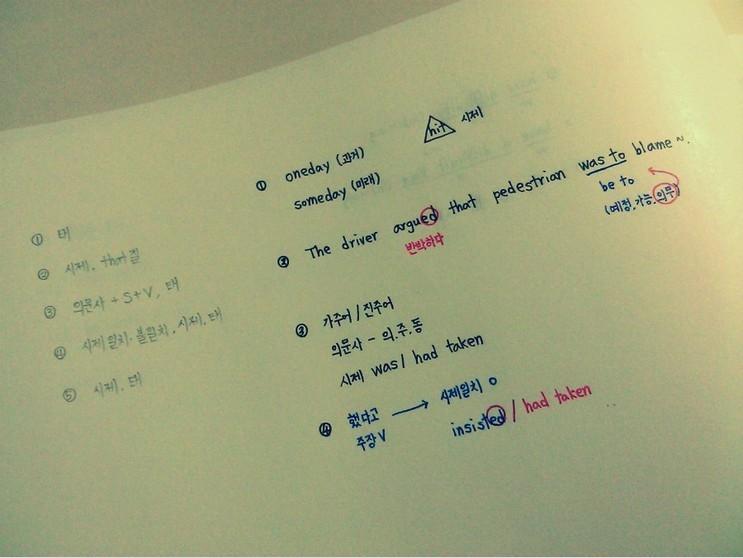 ① 태
② 시제, that절
③ 의문사 + S+V, 태
④ 시제일치·불일치, 시제, 태
⑤ 시제, 태
hit 시제
① oneday (과거)
someday (미래)
② The driver argued that pedestrian was to blame ~.
반박하다
be to
(예정, 가능, 의무)
③ 가주어 / 진주어
의문사 - 의.주.동
시제 was / had taken
④ 했다고 → 시제일치 o
주장 V insisted / had taken